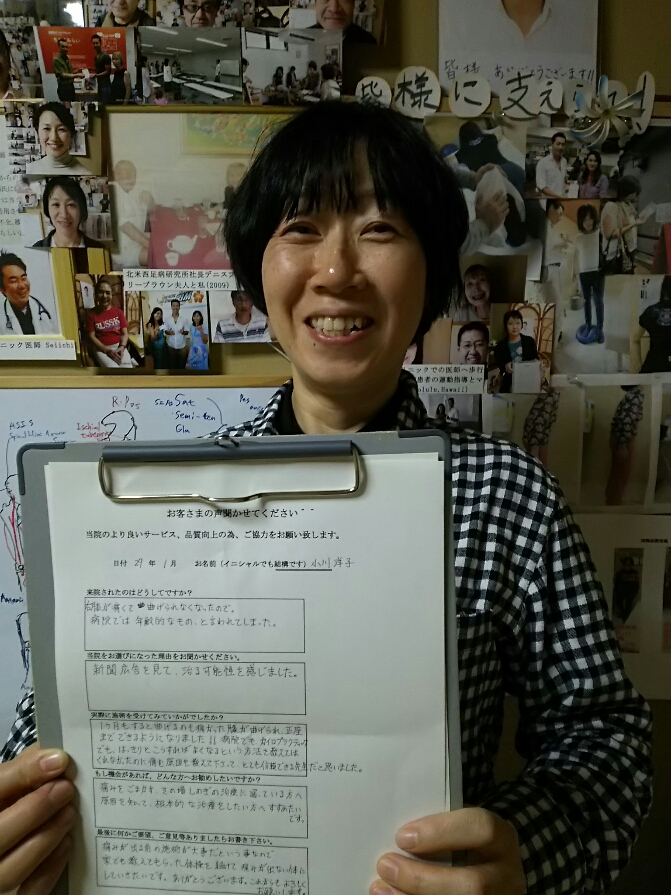 皆様 ありがとうございます!!
皆様に支えられて!
北米西足病研究所社長デニスブ
リーブラウン夫人と私(2009)
ニック医師 Seiichi
ニックでの医師へ歩行
患者の運動指導とマ
olulu,Hawaii)
R-Pos
Sat
Semi-ten
Gla
Ischial
ASIS
お客さまの声聞かせてください
当院のより良いサービス、品質向上の為、ご協力をお願い致します。
日付 29 年 1 月 お名前(イニシャルでも結構です) 小川 洋子
来院されたのはどうしてですか?
右膝が痛くて曲げられなくなったので。
病院では年齢的なもの、と言われてしまった。
当院をお選びになった理由をお聞かせください。
新聞広告を見て、治る可能性を感じました。
実際に施術を受けてみていかがでしたか?
1ヶ月もすると曲げるのも痛かった膝が曲げられ、正座
までできるようになりました!! 病院でもカイロプラクティック
でも、はっきりとこうすれば良くなるという方法を教えては
くれなかったのに痛む原因を教えて下さって、とても信頼できる先生だと思いました。
もし機会があれば、どんな方へお勧めしたいですか?
痛みをごまかす、その場しのぎの治療に困っている方へ
原因を知って、根本的な治療をしたい方へすすめたい
です。
最後に何かご要望、ご意見等ありましたらお書き下さい。
痛みが出る前の施術が大事だという事なので
家でも教えてもらった体操を続けて痛みが出ない体に
していきたいです。ありがとうございます。これからもよろしく
お願いします。